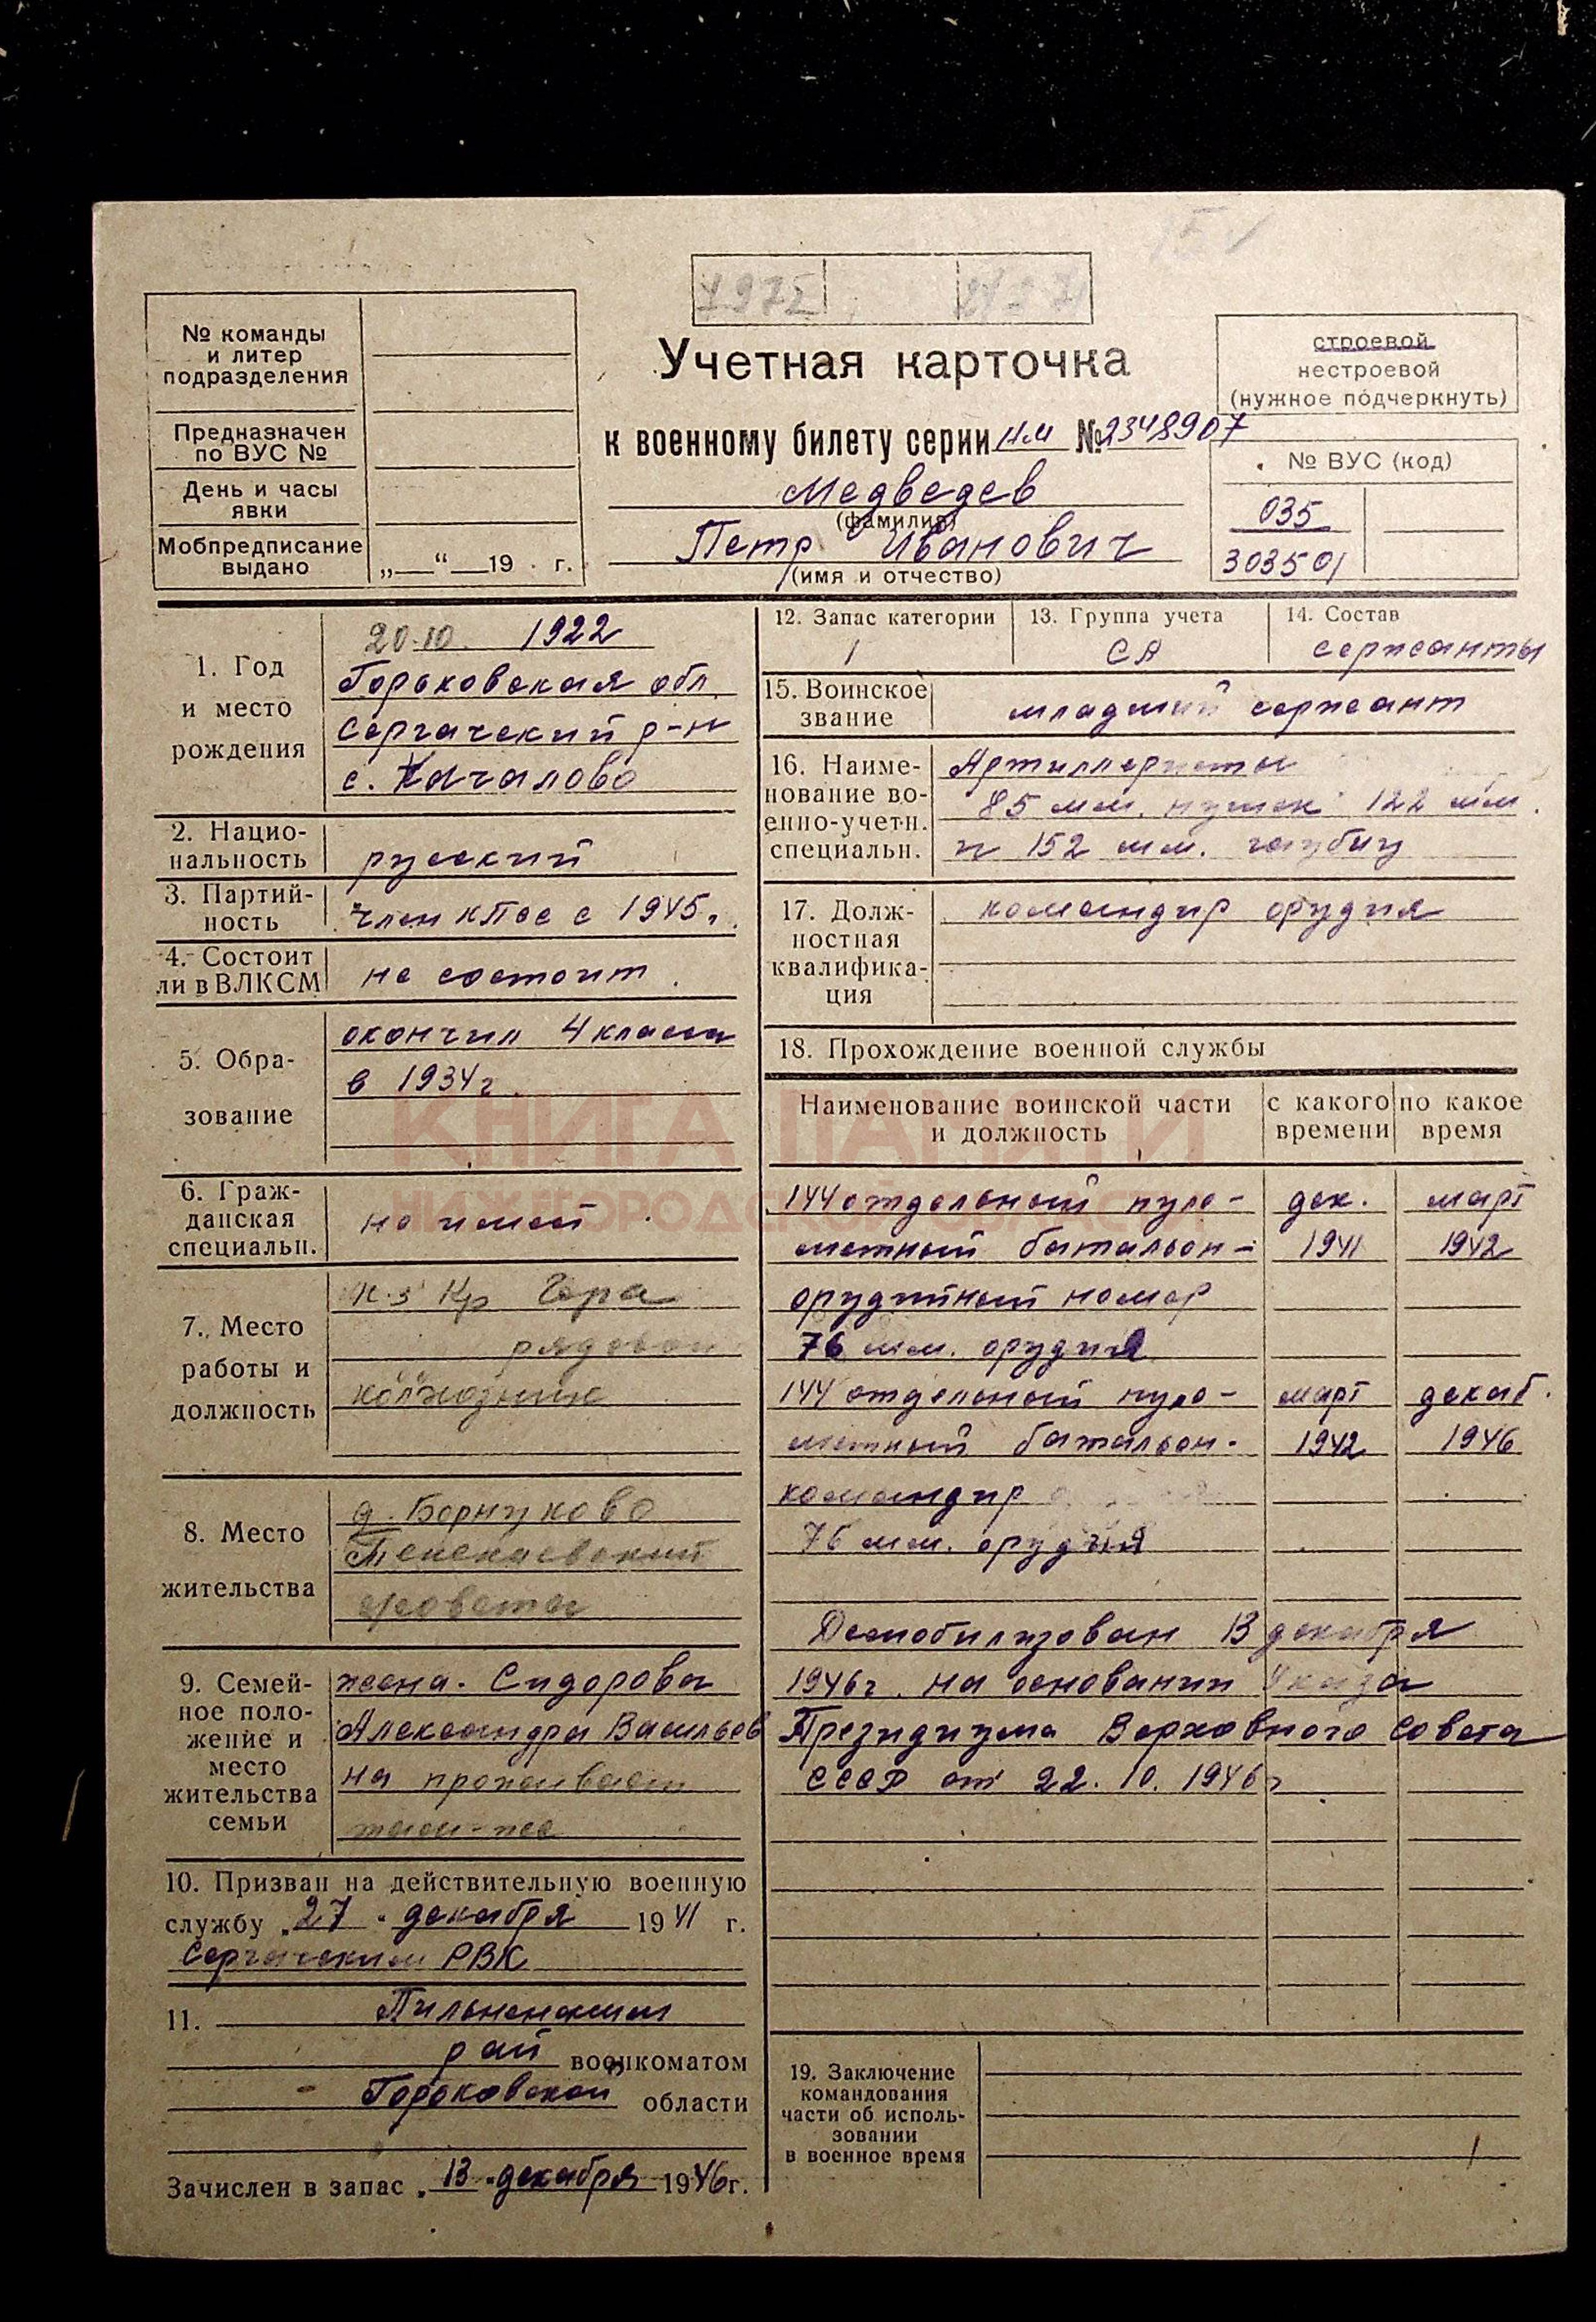 1972
№ команды
и литер
подразделения
Предназначен
по ВУС №
День и часы
явки
Мобпредписание
выдано
„ “ 19 г.
Учетная карточка
к военному билету серии НМ № 2348907
Медведев
(фамилия)
Петр Иванович
(имя и отчество)
строевой
нестроевой
(нужное подчеркнуть)
№ ВУС (код)
035
303501
1. Год
и место
рождения
20.10. 1922
Горьковская обл.
Сергачский р-н
с. Качалово
2. Нацио-
нальность
русский
3. Партий-
ность
член КПСС с 1945 г.
4. Состоит
ли в ВЛКСМ
не состоит.
5. Обра-
зование
окончил 4 класса
в 1934 г.
6. Граж-
данская
специальн.
не имеет
7. Место
работы и
должность
к-з Кр Гора
рядовой
колхозник
8. Место
жительства
д. Борнуково
9. Семей-
ное поло-
жение и
место
жительства
семьи
жена. Сидорова
Александра Васильев
на проживает
там-же
10. Призван на действительную военную
службу „27“ декабря 1941 г.
Сергачским РВК
11. Пильненским
рай военкоматом
Горьковской области
Зачислен в запас „13“ декабря 1946 г.
12. Запас категории
1
13. Группа учета
СА
14. Состав
сержанты
15. Воинское
звание
младший сержант
16. Наиме-
нование во-
енно-учетн.
специальн.
Артиллеристы
85 мм. пушек 122 мм.
и 152 мм. гаубиц
17. Долж-
ностная
квалифика-
ция
командир орудия
18. Прохождение военной службы
Наименование воинской части
и должность
с какого
времени
по какое
время
144 отдельный пуле- дек. март
метный батальон- 1941 1942
орудийный номер
76 мм. орудия
144 отдельный пуле- март декаб.
метный батальон- 1942 1946
командир
76 мм. орудия
Демобилизован 13 декабря
1946 г. на основании Указа
Президиума Верховного Совета
СССР от 22.10.1946 г
19. Заключение
командования
части об исполь-
зовании
в военное время
КНИГА ПАМЯТИ
НИЖЕГОРОДСКОЙ ОБЛАСТИ